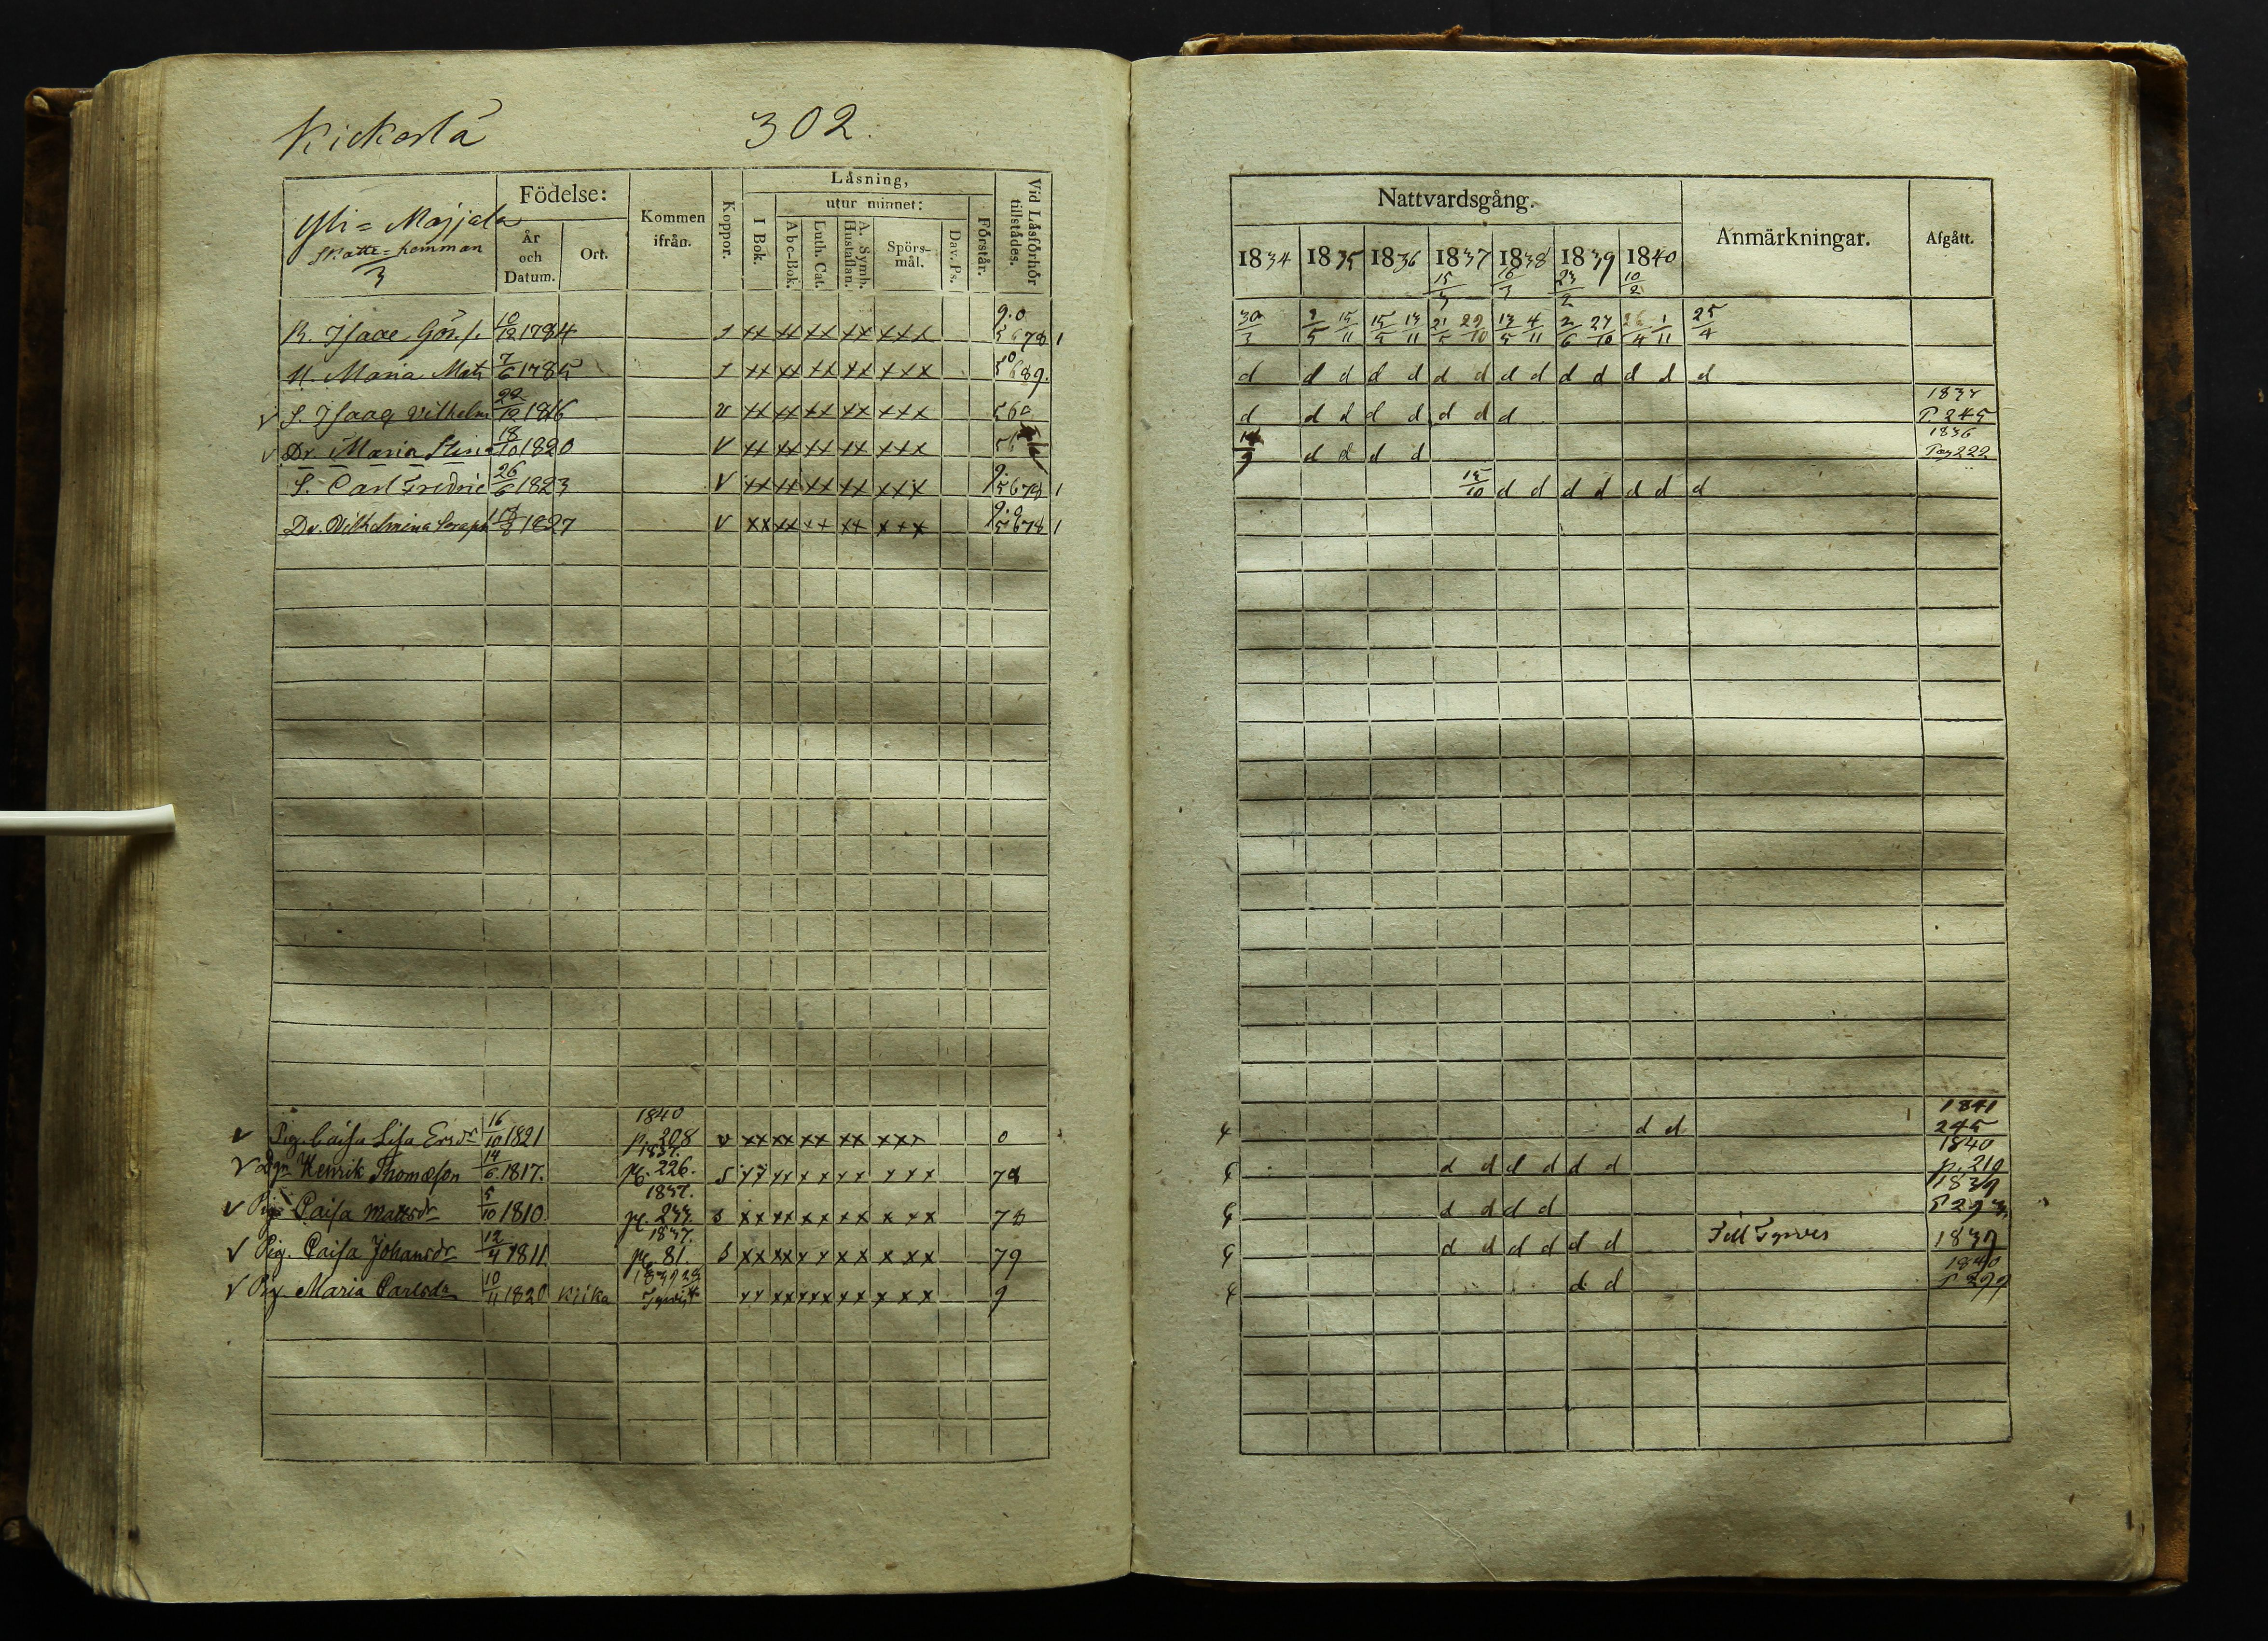 Kickerlä 302.
Yli=Maijala
Skatte=hemman
3
Födelse:
År och Datum.
Ort.
Kommen ifrån.
Koppor.
Läsning,
I Bok.
utur minnet:
Abc-Bok.
Luth. Cat.
A. Symb. Hustaflan.
Spörs-mål.
Dav. Ps.
Förstår.
Vid Läsförhör tillstådes.
B. Isaac Gör.s. 10/12 1784 s xx xx xx xx xxx 9.0 5678 1
H. Maria Mats 7/6 1785 s xx xx xx xx xxx 5689.
√ S. Isaaq Vilhelm 22/12 1816 v xx xx xx xx xxx 560
√ Dr. Maria Stina 18/10 1820 v xx xx xx xx xxx 56
S. Carl Fredric 26/6 1823 v xx xx xx xx xxx 9. 5678 1
Dr. Vilhelmina Seraph 1827 v xx xx xx xx xxx 9.0 5678 1
√ Pig. Caisa Lisa Ersdr 16/10 1821 1840 p. 208 v xx xx xx xx xxx 0
√ Dgr Henrik Thomæson 14/6 1817. 1837. pg. 226. s xx xx xx xx xxx 78
√ Pig. Caisa Mattsdr 5/10 1810 1837. pg. 233. s xx xx xx xx xxx 78
√ Pig. Caisa Johansdr 12/4 1811 1837. pg. 81. s xx xx xx xx xxx 79
√ Pig. Maria Carlsdr 10/11 1820 Kjika 1839 xx xx xx xx xxx 9
Nattvardsgång.
Anmärkningar.
Afgått.
1834 1835 1836 1837 1838 1839 1840
15/3 16/3 23/2 10/2
30/3 3/5 15/11 15/5 13/11 21/5 29/10 13/5 4/11 2/6 27/10 26/4 1/11 25/4
d d d d d d d d d d d d d d
d d d d d d d d 1837 P. 245
d d d d 1836 Pag 222
15/10 d d d d d d d
4 d d 1841 245
d d d d d d 1840 p. 210
d d d d 1839
d d d d d d Till Tyrvis 1839
4 d d 1840 P 299